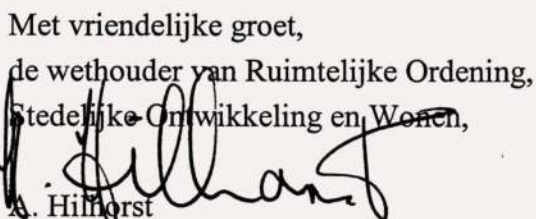 Met vriendelijke groet,
de wethouder van Ruimtelijke Ordening,
Stedelijke Ontwikkeling en Wonen,
A. Hilhorst
A. Hilhorst